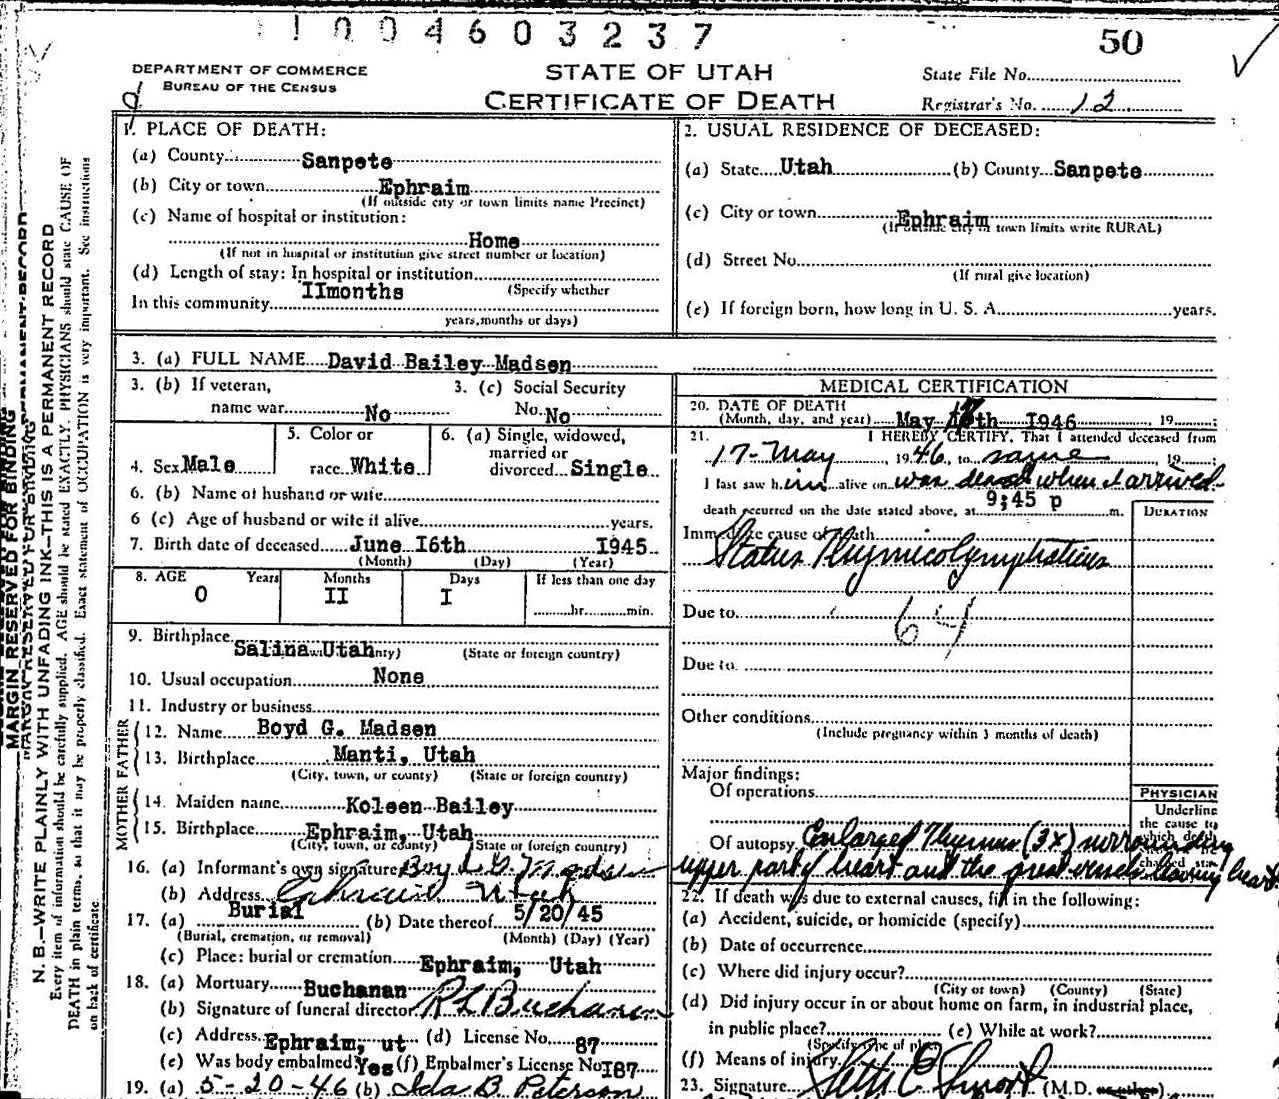 1004603237
50
DEPARTMENT OF COMMERCE
BUREAU OF THE CENSUS
STATE OF UTAH
CERTIFICATE OF DEATH
State File No.
Registrar's No. 12
1. PLACE OF DEATH:
(a) County Sanpete
(b) City or town Ephraim
(If outside city or town limits name Precinct)
(c) Name of hospital or institution:
Home
(If not in hospital or institution give street number or location)
(d) Length of stay: In hospital or institution
(Specify whether
In this community IImonths
years, months or days)
2. USUAL RESIDENCE OF DECEASED:
(a) State Utah (b) County Sanpete
(c) City or town Ephraim
(If outside city or town limits write RURAL)
(d) Street No.
(If rural give location)
(e) If foreign born, how long in U. S. A. years.
3. (a) FULL NAME David Bailey Madsen
3. (b) If veteran, name war No
3. (c) Social Security No. No
4. Sex Male
5. Color or race White
6. (a) Single, widowed, married or divorced Single
6. (b) Name of husband or wife
6 (c) Age of husband or wife if alive years.
7. Birth date of deceased June I6th I945
(Month) (Day) (Year)
8. AGE Years Months Days If less than one day
0 II I hr. min.
9. Birthplace Salina Utah
(State or foreign country)
10. Usual occupation None
11. Industry or business
FATHER
12. Name Boyd G. Madsen
13. Birthplace Manti, Utah
(City, town, or county) (State or foreign country)
MOTHER
14. Maiden name Koleen Bailey
15. Birthplace Ephraim, Utah
(City, town, or county) (State or foreign country)
16. (a) Informant's own signature Boyd G. Madsen
(b) Address Ephraim Utah
17. (a) Burial (b) Date thereof 5/20/45
(Burial, cremation, or removal) (Month) (Day) (Year)
(c) Place: burial or cremation Ephraim, Utah
18. (a) Mortuary Buchanan
(b) Signature of funeral director R L Buchanan
(c) Address Ephraim, ut (d) License No. 87
(e) Was body embalmed Yes (f) Embalmer's License No I87
19. (a) 5-20-46 (b) Ida B. Peterson
MEDICAL CERTIFICATION
20. DATE OF DEATH
(Month, day, and year) May 17th I946 , 19 ;
21. I HEREBY CERTIFY, That I attended deceased from
17-May , 1946, to same , 19 ;
I last saw him alive on was dead when I arrived
death occurred on the date stated above, at 9;45 p m.
DURATION
Immediate cause of death
Status Thymicolymphaticus
Due to
64
Due to
Other conditions
(Include pregnancy within 3 months of death)
Major findings:
Of operations
PHYSICIAN
Underline
the cause to
which death
Of autopsy Enlarged Thymus (3X) surrounding
upper part heart and the great vessels leaving heart
22. If death was due to external causes, fill in the following:
(a) Accident, suicide, or homicide (specify)
(b) Date of occurrence
(c) Where did injury occur?
(City or town) (County) (State)
(d) Did injury occur in or about home on farm, in industrial place,
in public place? (e) While at work?
(Specify type of place)
(f) Means of injury
23. Signature (M.D. or other)
MARGIN RESERVED FOR BINDING
N. B.—WRITE PLAINLY WITH UNFADING INK—THIS IS A PERMANENT RECORD
Every item of information should be carefully supplied. AGE should be stated EXACTLY. PHYSICIANS should state CAUSE OF
DEATH in plain terms, so that it may be properly classified. Exact statement of OCCUPATION is very important. See instructions
on back of certificate.